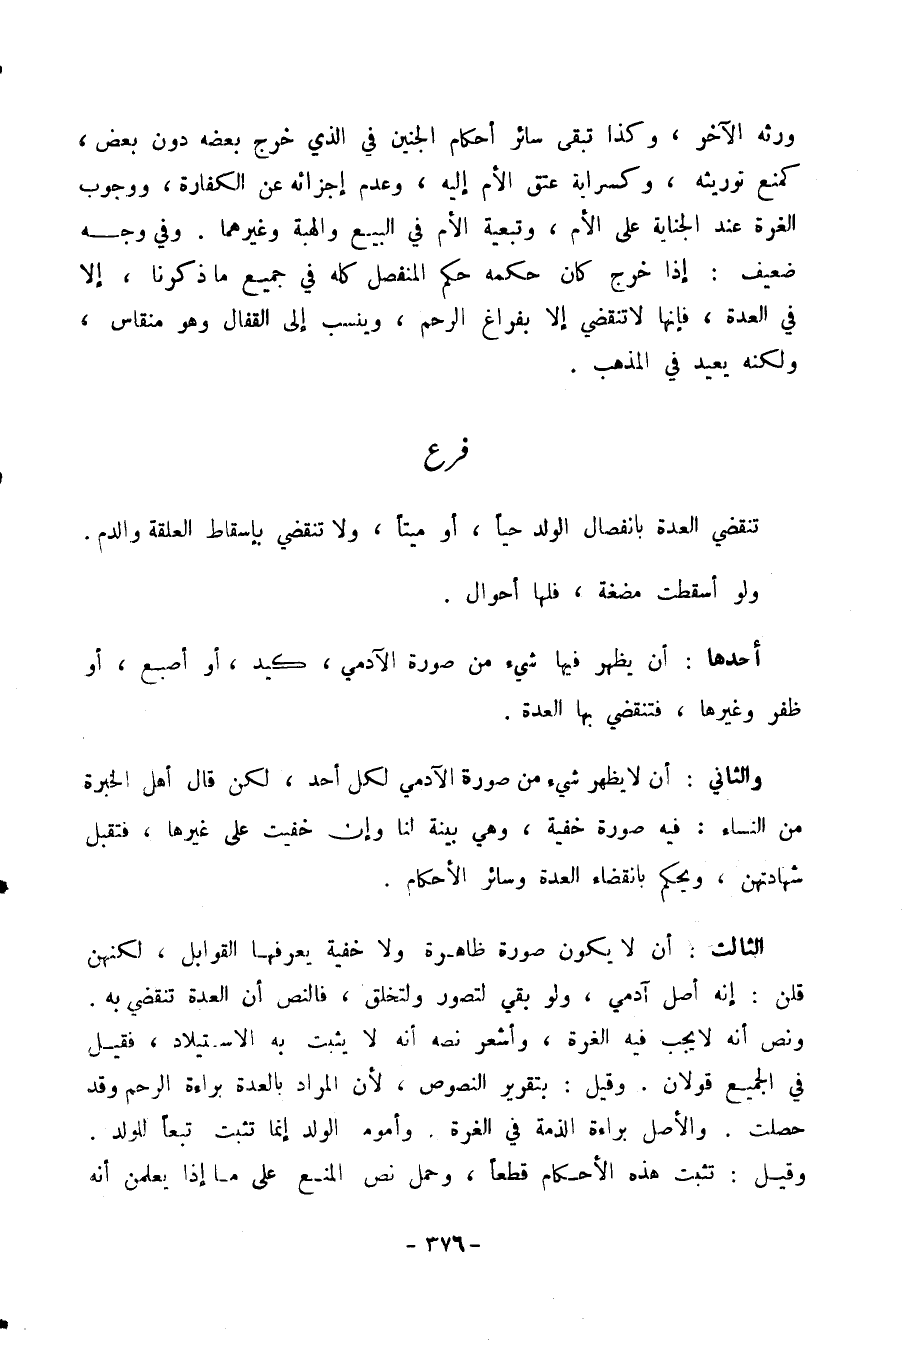 ورثه الآخر ، وكذا تبقى سائر أحكام الجنين في الذي خرج بعضه دون بعض ،
كمنع توريثه ، وكسراية عتق الأم إليه ، وعدم إجزائه عن الكفارة ، ووجوب
الغرة عند الجناية على الأم ، وتبعية الأم في البيع والهبة وغيرهما . وفي وجـــه
ضعيف : إذا خرج كان حكمه حكم المنفصل كله في جميع ماذكرنا ، إلا
في العدة ، فإنها لاتنقضي إلا بفراغ الرحم ، وينسب إلى القفال وهو منقاس ،
ولكنه بعيد في المذهب .
فرع
تنقضي العدة بانفصال الولد حياً ، أو ميتاً ، ولا تنقضي بإسقاط العلقة والدم .
ولو أسقطت مضغة ، فلها أحوال .
أحدها : أن يظهر فيها شيء من صورة الآدمي ، كيد ، أو أصبع ، أو
ظفر وغيرها ، فتنقضي بها العدة .
والثاني : أن لايظهر شيء من صورة الآدمي لكل أحد ، لكن قال أهل الخبرة
من النساء : فيه صورة خفية ، وهي بينة لنا وإن خفيت على غيرها ، فتقبل
شهادتهن ، ويحكم بانقضاء العدة وسائر الأحكام .
الثالث : أن لا يكون صورة ظاهرة ولا خفية يعرفها القوابل ، لكنهن
قلن : إنه أصل آدمي ، ولو بقي لتصور ولتخلق ، فالنص أن العدة تنقضي به .
ونص أنه لايجب فيه الغرة ، وأشعر نصه أنه لا يثبت به الاستيلاد ، فقيل
في الجميع قولان . وقيل : بتقرير النصوص ، لأن المراد بالعدة براءة الرحم وقد
حصلت . والأصل براءة الذمة في الغرة . وأمومه الولد إنما تثبت تبعاً للولد .
وقيل : تثبت هذه الأحكام قطعاً ، وحمل نص المنع على ما إذا يعلمن أنه
- ٣٧٦ -